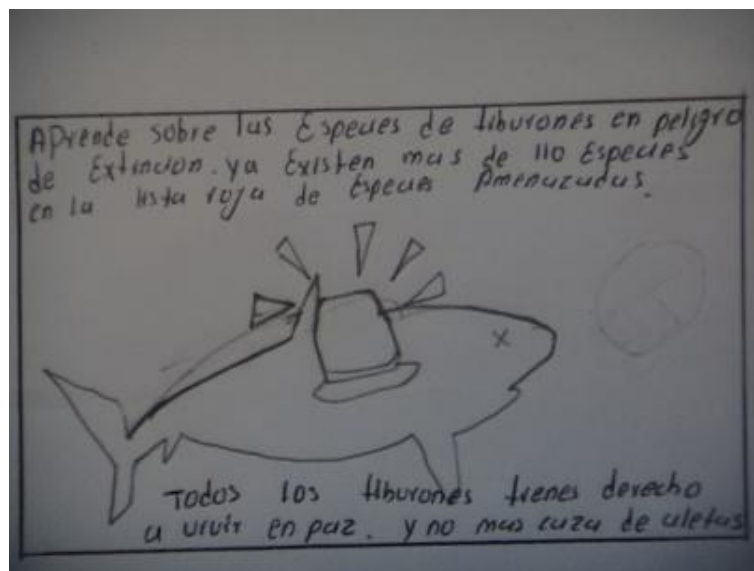 Aprende sobre las Especies de tiburones en peligro
de Extincion. ya Existen mas de 110 Especies
en la lista roja de Especies Amenazadas.
Todos los tiburones tienes derecho
a vivir en paz. y no mas caza de aletas